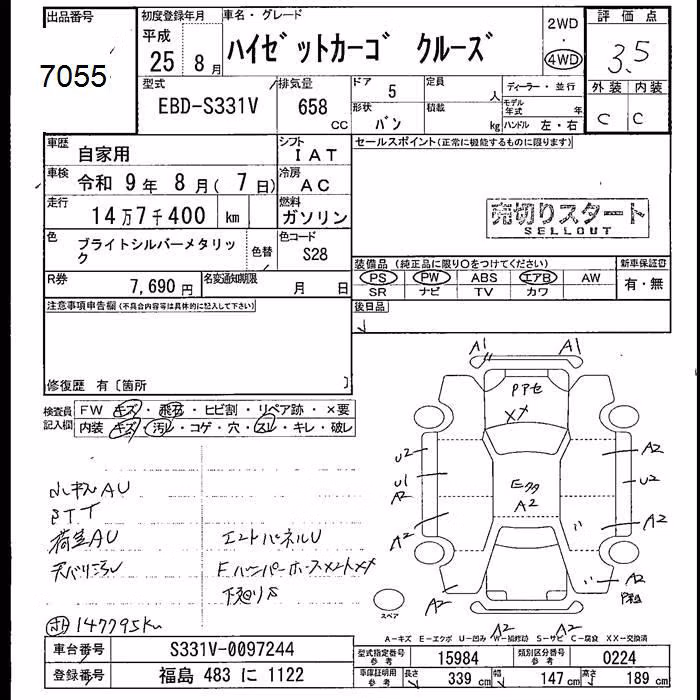 出品番号
7055
初度登録年月
平成
25 8月
車名・グレード
ハイゼットカーゴ クルーズ
2WD
・
4WD
評価点
3.5
外装 内装
C C
型式
EBD-S331V
排気量
658
CC
ドア 5
定員 人
形状 バン
積載 kg
ディーラー・並行
モデル年式 年
ハンドル 左・右
車歴 自家用
シフト IAT
車検 令和 9年 8月( 7日)
冷房 AC
走行 14万7千400 km
燃料 ガソリン
色 ブライトシルバーメタリック
色替
色コード S28
R券 7,690円
名変通知期限 月 日
セールスポイント(正常に機能するものに限ります)
売切りスタート
SELLOUT
装備品 (純正品に限り○をつけてください)
新車保証書
PS PW ABS エアB AW
有・無
SR ナビ TV カワ
後日品
注意事項申告欄(不具合内容等は具体的に記入して下さい)
修復歴 有〔箇所 〕
検査員記入欄
FW キズ・飛石・ヒビ割・リペア跡・×要
内装 キズ・汚レ・コゲ・穴・スレ・キレ・破レ
A1 A1
PPセ
XX
U2
A2
U1
A2
U2
エクタ
A2
A2
A2
A2
A2
A2
A2
荷室AU
エントパネルU
下廻りS
147795Km
スペア
A-キズ E-エクボ U-凹み W-補修跡 S-サビ C-腐食 XX-交換済
車台番号 S331V-0097244
登録番号 福島 483 に 1122
型式指定番号 参考 15984
類別区分番号 参考 0224
車庫証明用 参考 長さ 339 cm 幅 147 cm 高さ 189 cm